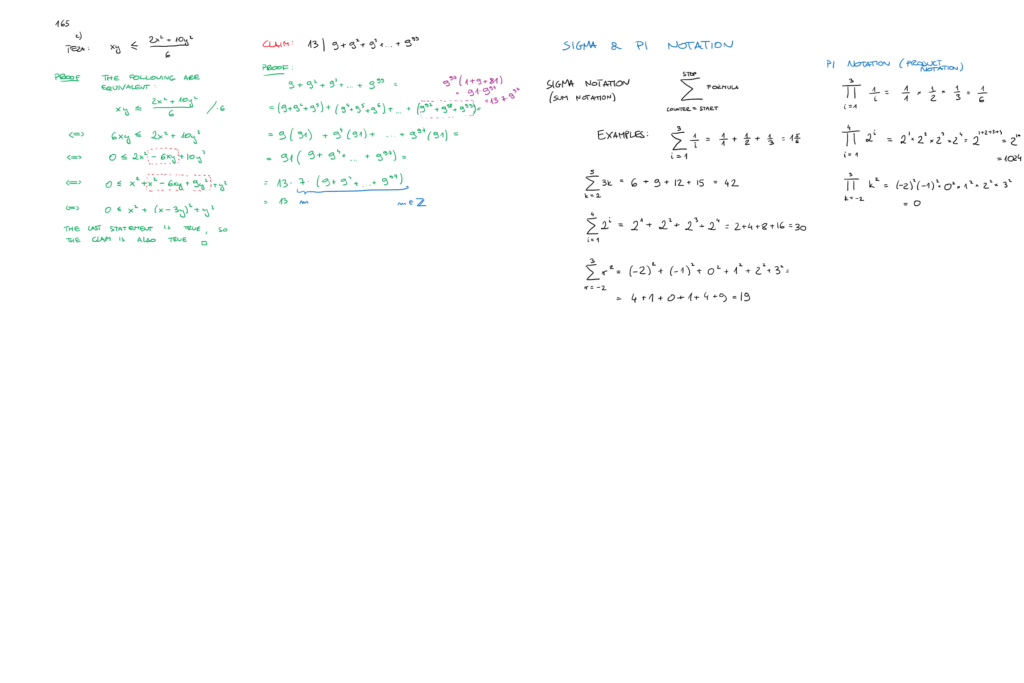 165
c)
TEZA: xy ≤ (2x² + 10y²)/6
PROOF THE FOLLOWING ARE
EQUIVALENT:
xy ≤ (2x² + 10y²)/6 /·6
(=) 6xy ≤ 2x² + 10y²
(=) 0 ≤ 2x² - 6xy + 10y²
(=) 0 ≤ x² + x² - 6xy + 9y² + y²
(=) 0 ≤ x² + (x-3y)² + y²
THE LAST STATEMENT IS TRUE, SO
THE CLAIM IS ALSO TRUE □
CLAIM: 13 | 9 + 9² + 9³ + ... + 9⁹⁹
PROOF:
9 + 9² + 9³ + ... + 9⁹⁹ =
= (9+9²+9³) + (9⁴+9⁵+9⁶) + ... + (9⁹⁷+9⁹⁸+9⁹⁹) =
= 9(91) + 9⁴(91) + ... + 9⁹⁷(91) =
= 91(9 + 9⁴ + ... + 9⁹⁷) =
= 13 · 7 · (9 + 9⁴ + ... + 9⁹⁷)
= 13 m m ∈ Z
9⁹⁷(1+9+81)
= 91·9⁹⁷
= 13·7·9⁹⁷
SIGMA & PI NOTATION
SIGMA NOTATION
(SUM NOTATION)
STOP
∑ FORMULA
COUNTER = START
EXAMPLES:
3
∑ 1/i = 1/1 + 1/2 + 1/3 = 1 5/6
i=1
5
∑ 3k = 6 + 9 + 12 + 15 = 42
k=2
4
∑ 2ⁱ = 2¹ + 2² + 2³ + 2⁴ = 2+4+8+16 = 30
i=1
3
∑ r² = (-2)² + (-1)² + 0² + 1² + 2² + 3² =
r=-2
= 4 + 1 + 0 + 1 + 4 + 9 = 19
PI NOTATION (PRODUCT
NOTATION)
3
∏ 1/i = 1/1 × 1/2 × 1/3 = 1/6
i=1
4
∏ 2ⁱ = 2¹ × 2² × 2³ × 2⁴ = 2¹⁺²⁺³⁺⁴ = 2¹⁰
i=1
= 1024
3
∏ k² = (-2)²(-1)² × 0² × 1² × 2² × 3²
k=-2
= 0